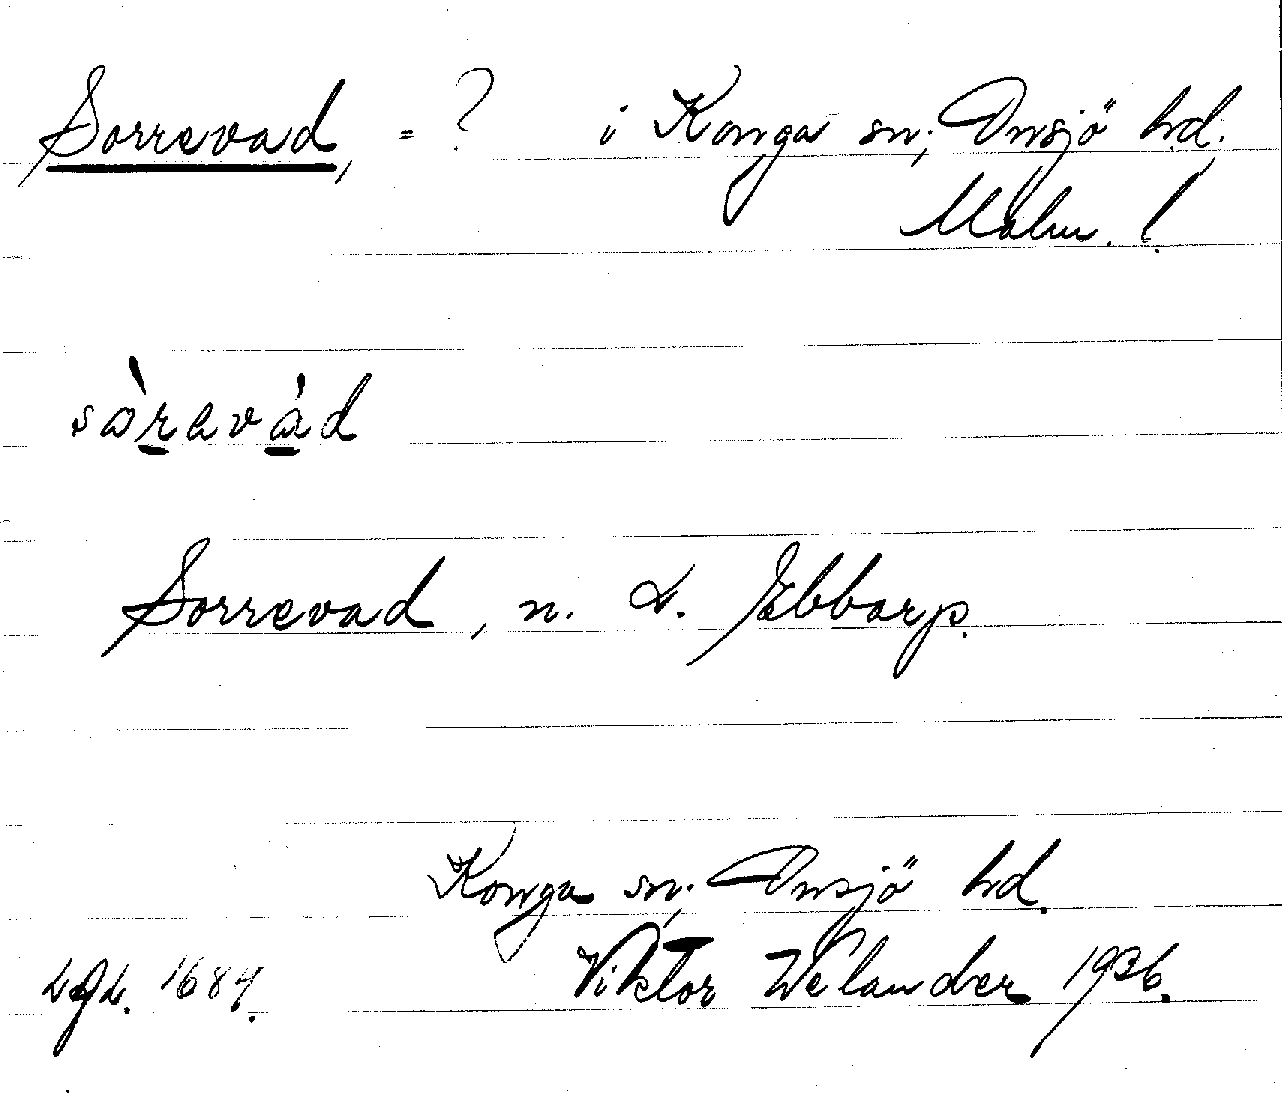 Sorrevad, = ? i Konga sn, Onsjö hd.
Malm. l.
sàravàd
Sorrevad, n. Ebbarp.
Konga sn, Onsjö hd.
1684. Viktor Welander 1936.